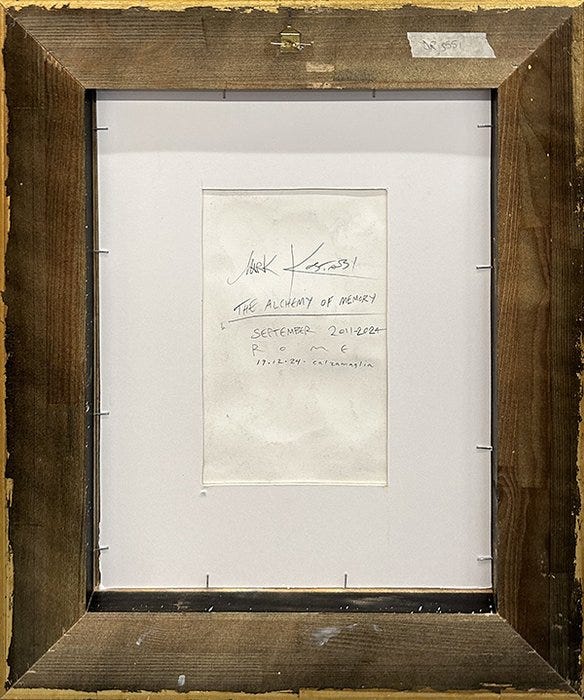 DR 5551
MARK
THE ALCHEMY OF MEMORY
SEPTEMBER 2011-2024
ROME
19.12.24. calzamaglia